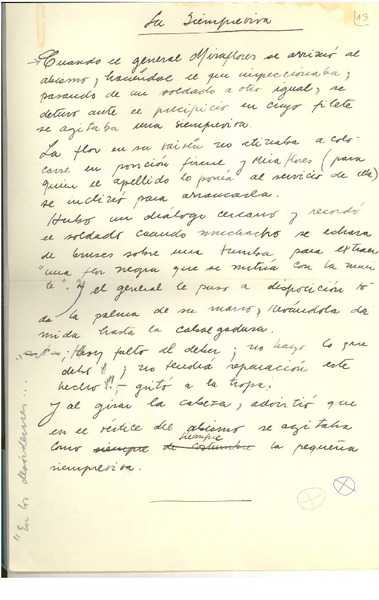 La Siempreviva
13
Cuando el general Miraflores se arrimó al
abismo, haciendose el que inspeccionaba,
pasando de un soldado a otro igual, se
detuvo ante el precipicio en cuyo filete
se agitaba una siempreviva.
La flor en su vaivén no atinaba a colo-
carse en posición firme y Miraflores (para
quien el apellido lo ponía al servicio de ella)
se inclinó para arrancarla.
Hubo un diálogo cercano y recordó
el soldado cuando muchacho se echara
de bruces sobre una tumba, para extraer
"una flor negra que se nutría con la muer-
te". Y el general le puso a disposición to-
da la palma de su mano, llevándola da
mida hasta la cabalgadura.
¡Hoy falto al deber; no hago lo que
debo!; ¡no tendrá reparación este
hecho!- gritó a la tropa.
Y al girar la cabeza, advirtió que
en el vértice del abismo se agitaba
como siempre de costumbre siempre la pequeña
siempreviva.
"En los desórdenes..."